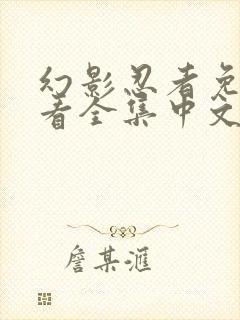 幻影忍者免
看全集中文
詹某滙